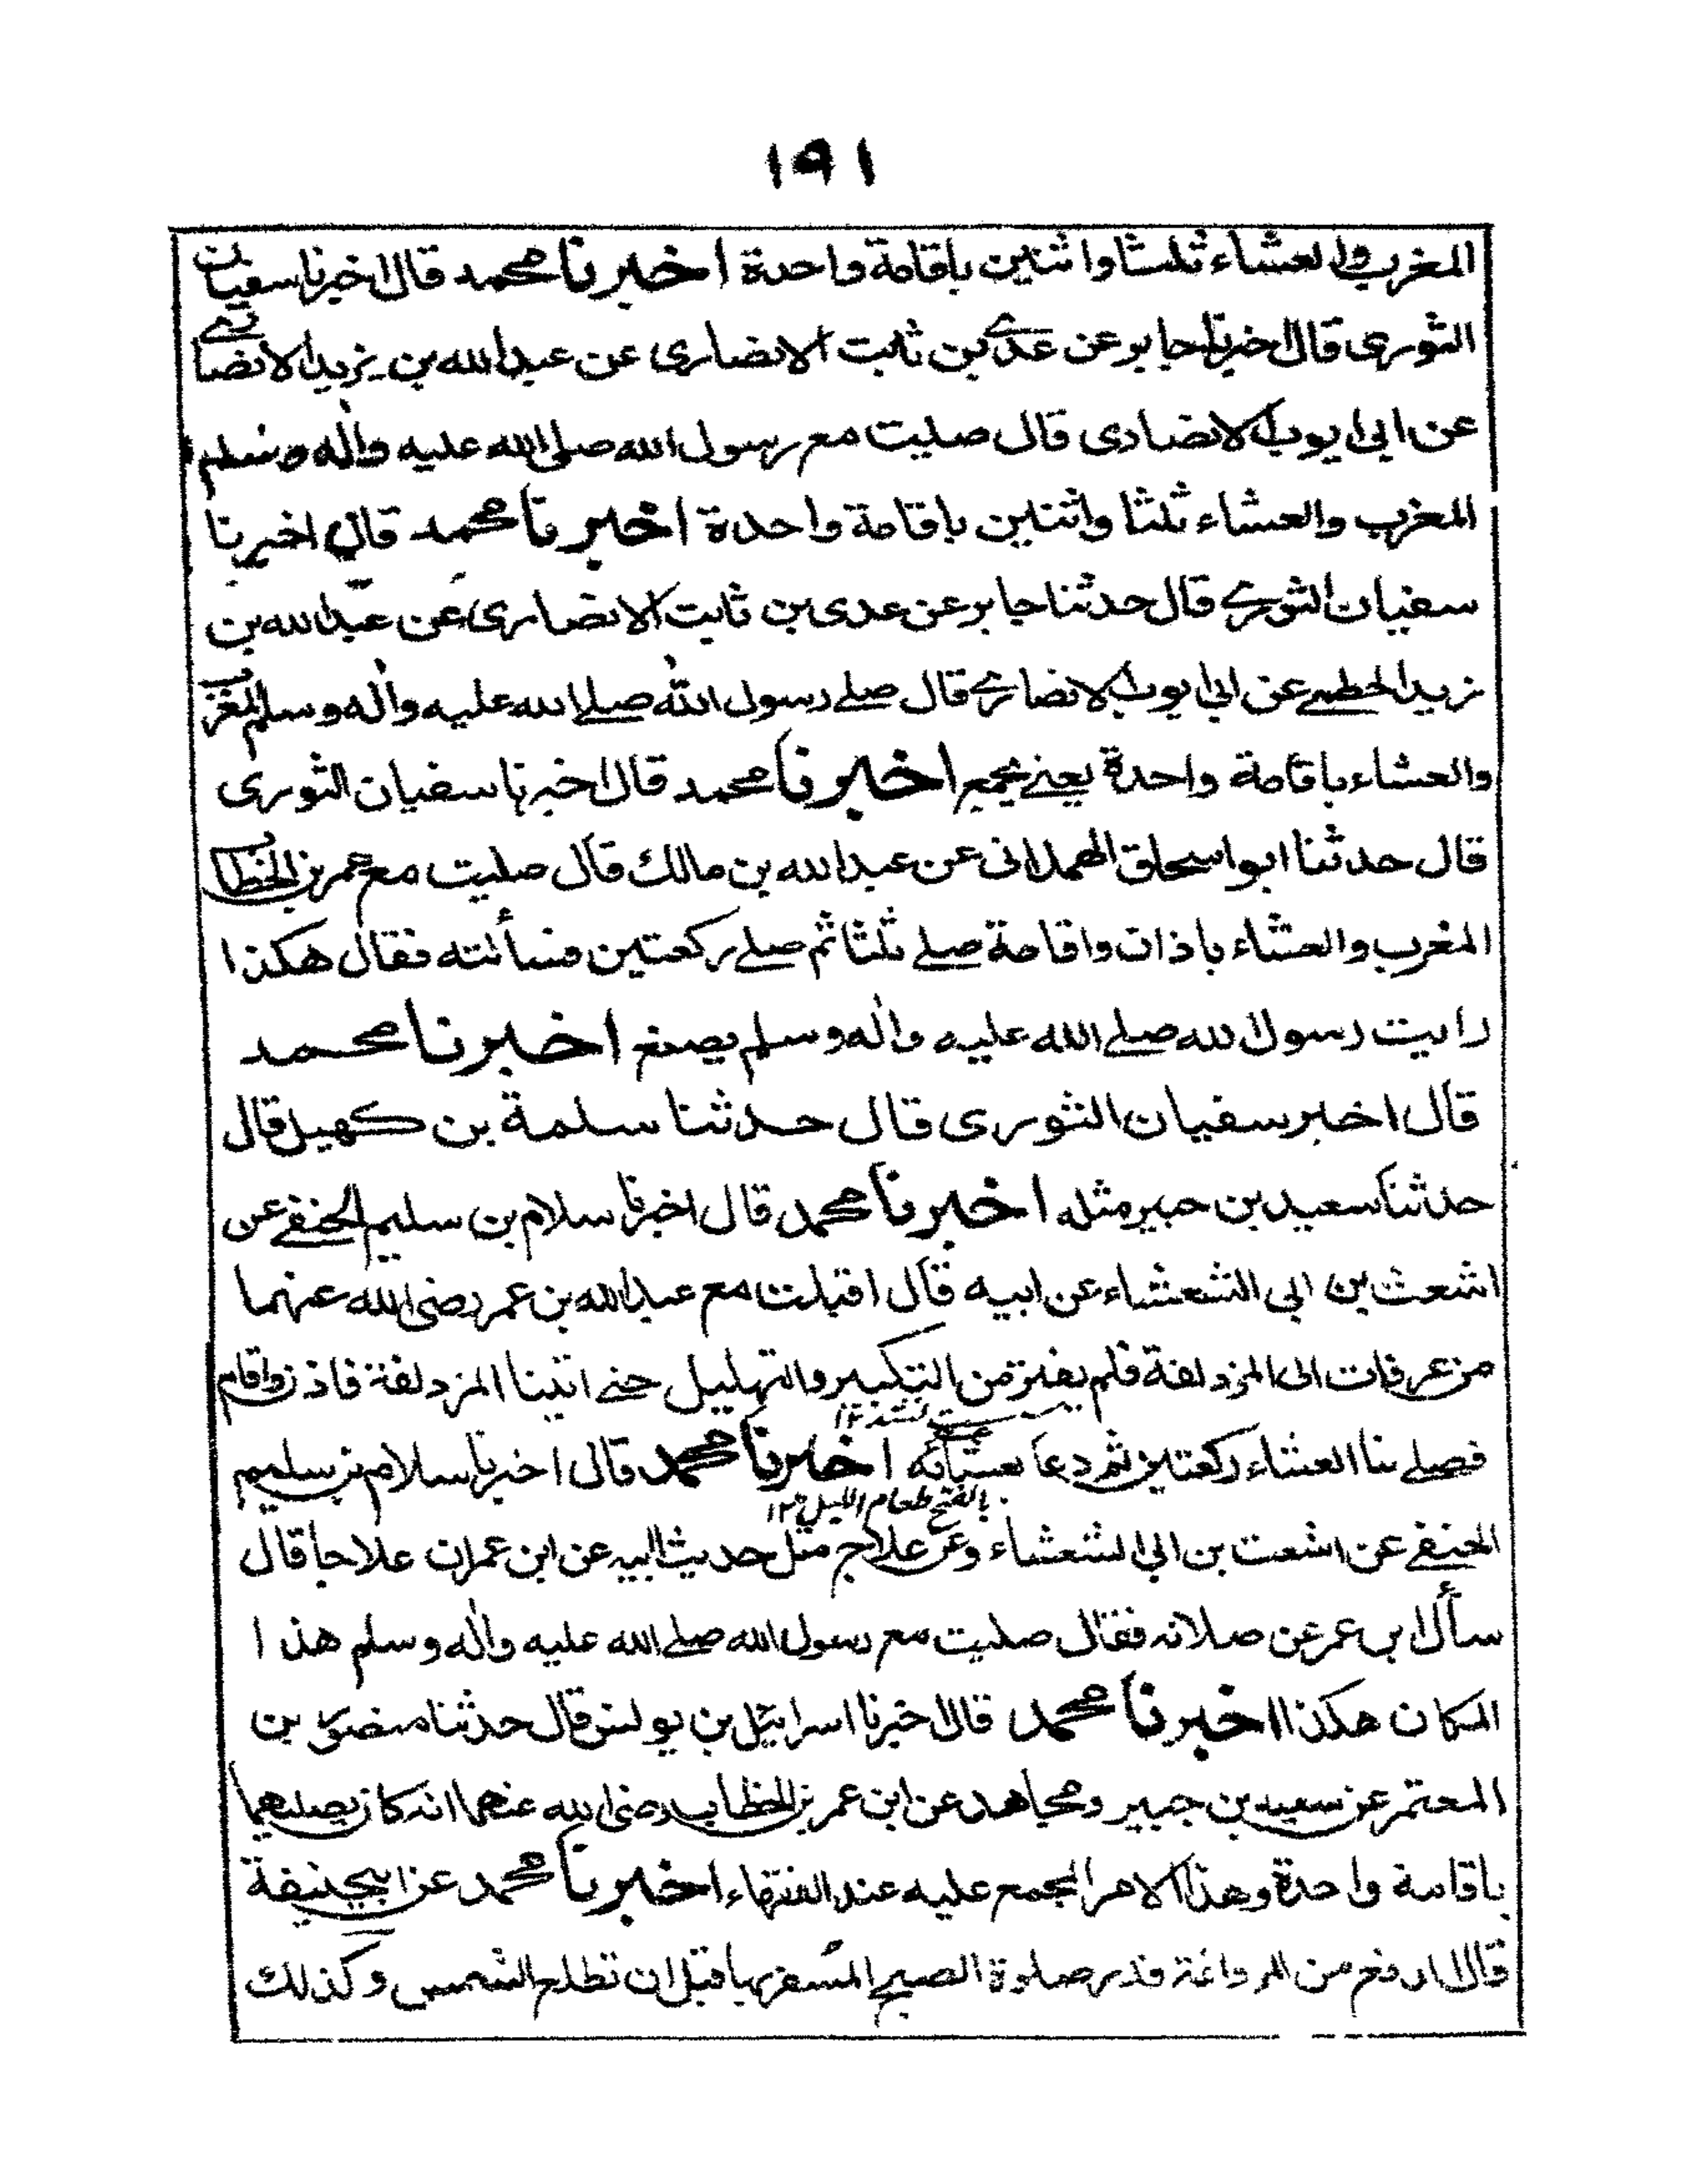 ١٩١
المغرب والعشاء ثلثا واثنتين باقامة واحدة اخبرنا محمد قال اخبرنا سفيان
الثورى قال اخبرنا جابر عن عدے بن ثابت الانصارى عن عبدالله بن يزيد الانصارے
عن ابى ايوب الانصارى قال صليت مع رسول الله صلى الله عليه واٰله وسلم
المغرب والعشاء ثلثا واثنتين باقامة واحدة اخبرنا محمد قال اخبرنا
سفيان الثورے قال حدثنا جابر عن عدى بن ثابت الانصارى عن عبدالله بن
يزيد الخطمے عن ابى ايوب الانصارے قال صلے رسول الله صلے الله عليه واٰله وسلم المغرب
والعشاء باقامة واحدة يعنے بجمع اخبرنا محمد قال اخبرنا سفيان الثورى
قال حدثنا ابو اسحاق الهمدانى عن عبدالله بن مالك قال صليت مع عمر بن الخطاب
المغرب والعشاء باذان واقامة صلے ثلثا ثم صلے ركعتين فسألته فقال هكذا
رايت رسول الله صلے الله عليه واٰله وسلم يصنع اخبرنا محمد
قال اخبر سفيان الثورى قال حدثنا سلمة بن كهيل قال
حدثنا سعيد بن جبير مثله اخبرنا محمد قال اخبرنا سلام بن سليم الحنفے عن
اشعث بن ابى الشعثاء عن ابيه قال اقبلت مع عبدالله بن عمر رضى الله عنهما
من عرفات الى المزدلفة فلم يفتر من التكبير والتهليل حتے اتينا المزدلفة فاذن واقام
فصلے بنا العشاء ركعتين ثم دعا بعشائه اخبرنا محمد قال اخبرنا سلام بن سليم
بالفتح طعام الليل ١٢
الحنفے عن اشعث بن ابى الشعثاء وعن علاج مثل حديث ابيه عن ابن عمران علاجا قال
سأل ابن عمر عن صلاته فقال صليت مع رسول الله صلے الله عليه واٰله وسلم هذا
المكان هكذا اخبرنا محمد قال اخبرنا اسرائيل بن يونس قال حدثنا منصور بن
المعتمر عن سعيد بن جبير ومجاهد عن ابن عمر بن الخطاب رضى الله عنهما انه كان يصليهما
باقامة واحدة وهذا الامر المجمع عليه عند الفقهاء اخبرنا محمد عن ابيحنيفة
قال من قدر صلوة الصبح المسفر بها قبل ان تطلع الشمس وكذلك